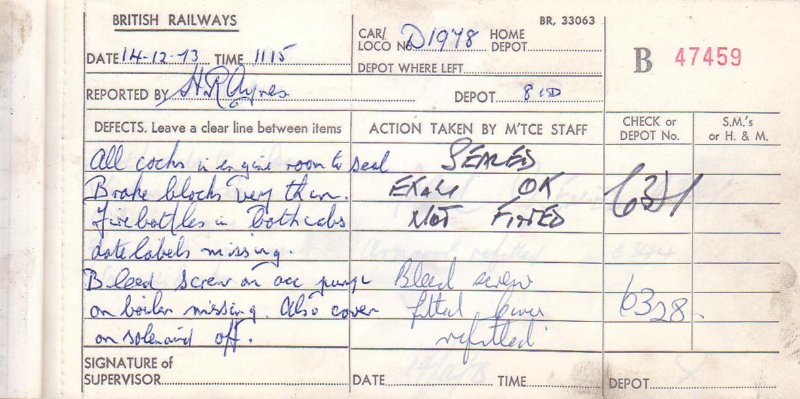 BRITISH RAILWAYS
BR. 33063
CAR/ LOCO No. D1978 HOME DEPOT
DATE 14-12-73 TIME 1115
DEPOT WHERE LEFT
B 47459
REPORTED BY H R Ayres DEPOT 81D
DEFECTS. Leave a clear line between items
ACTION TAKEN BY M'TCE STAFF
CHECK or DEPOT No.
S.M.'s or H. & M.
All cocks in engine room to seal SEALED
Brake blocks very thin. EXAM OK
Fire bottles in both cabs NOT FITTED
date labels missing.
Bleed screw on acc pump Bleed screw
on boiler missing. Also cover fitted cover 6328.
on solenoid off. refitted
SIGNATURE of SUPERVISOR
DATE TIME DEPOT